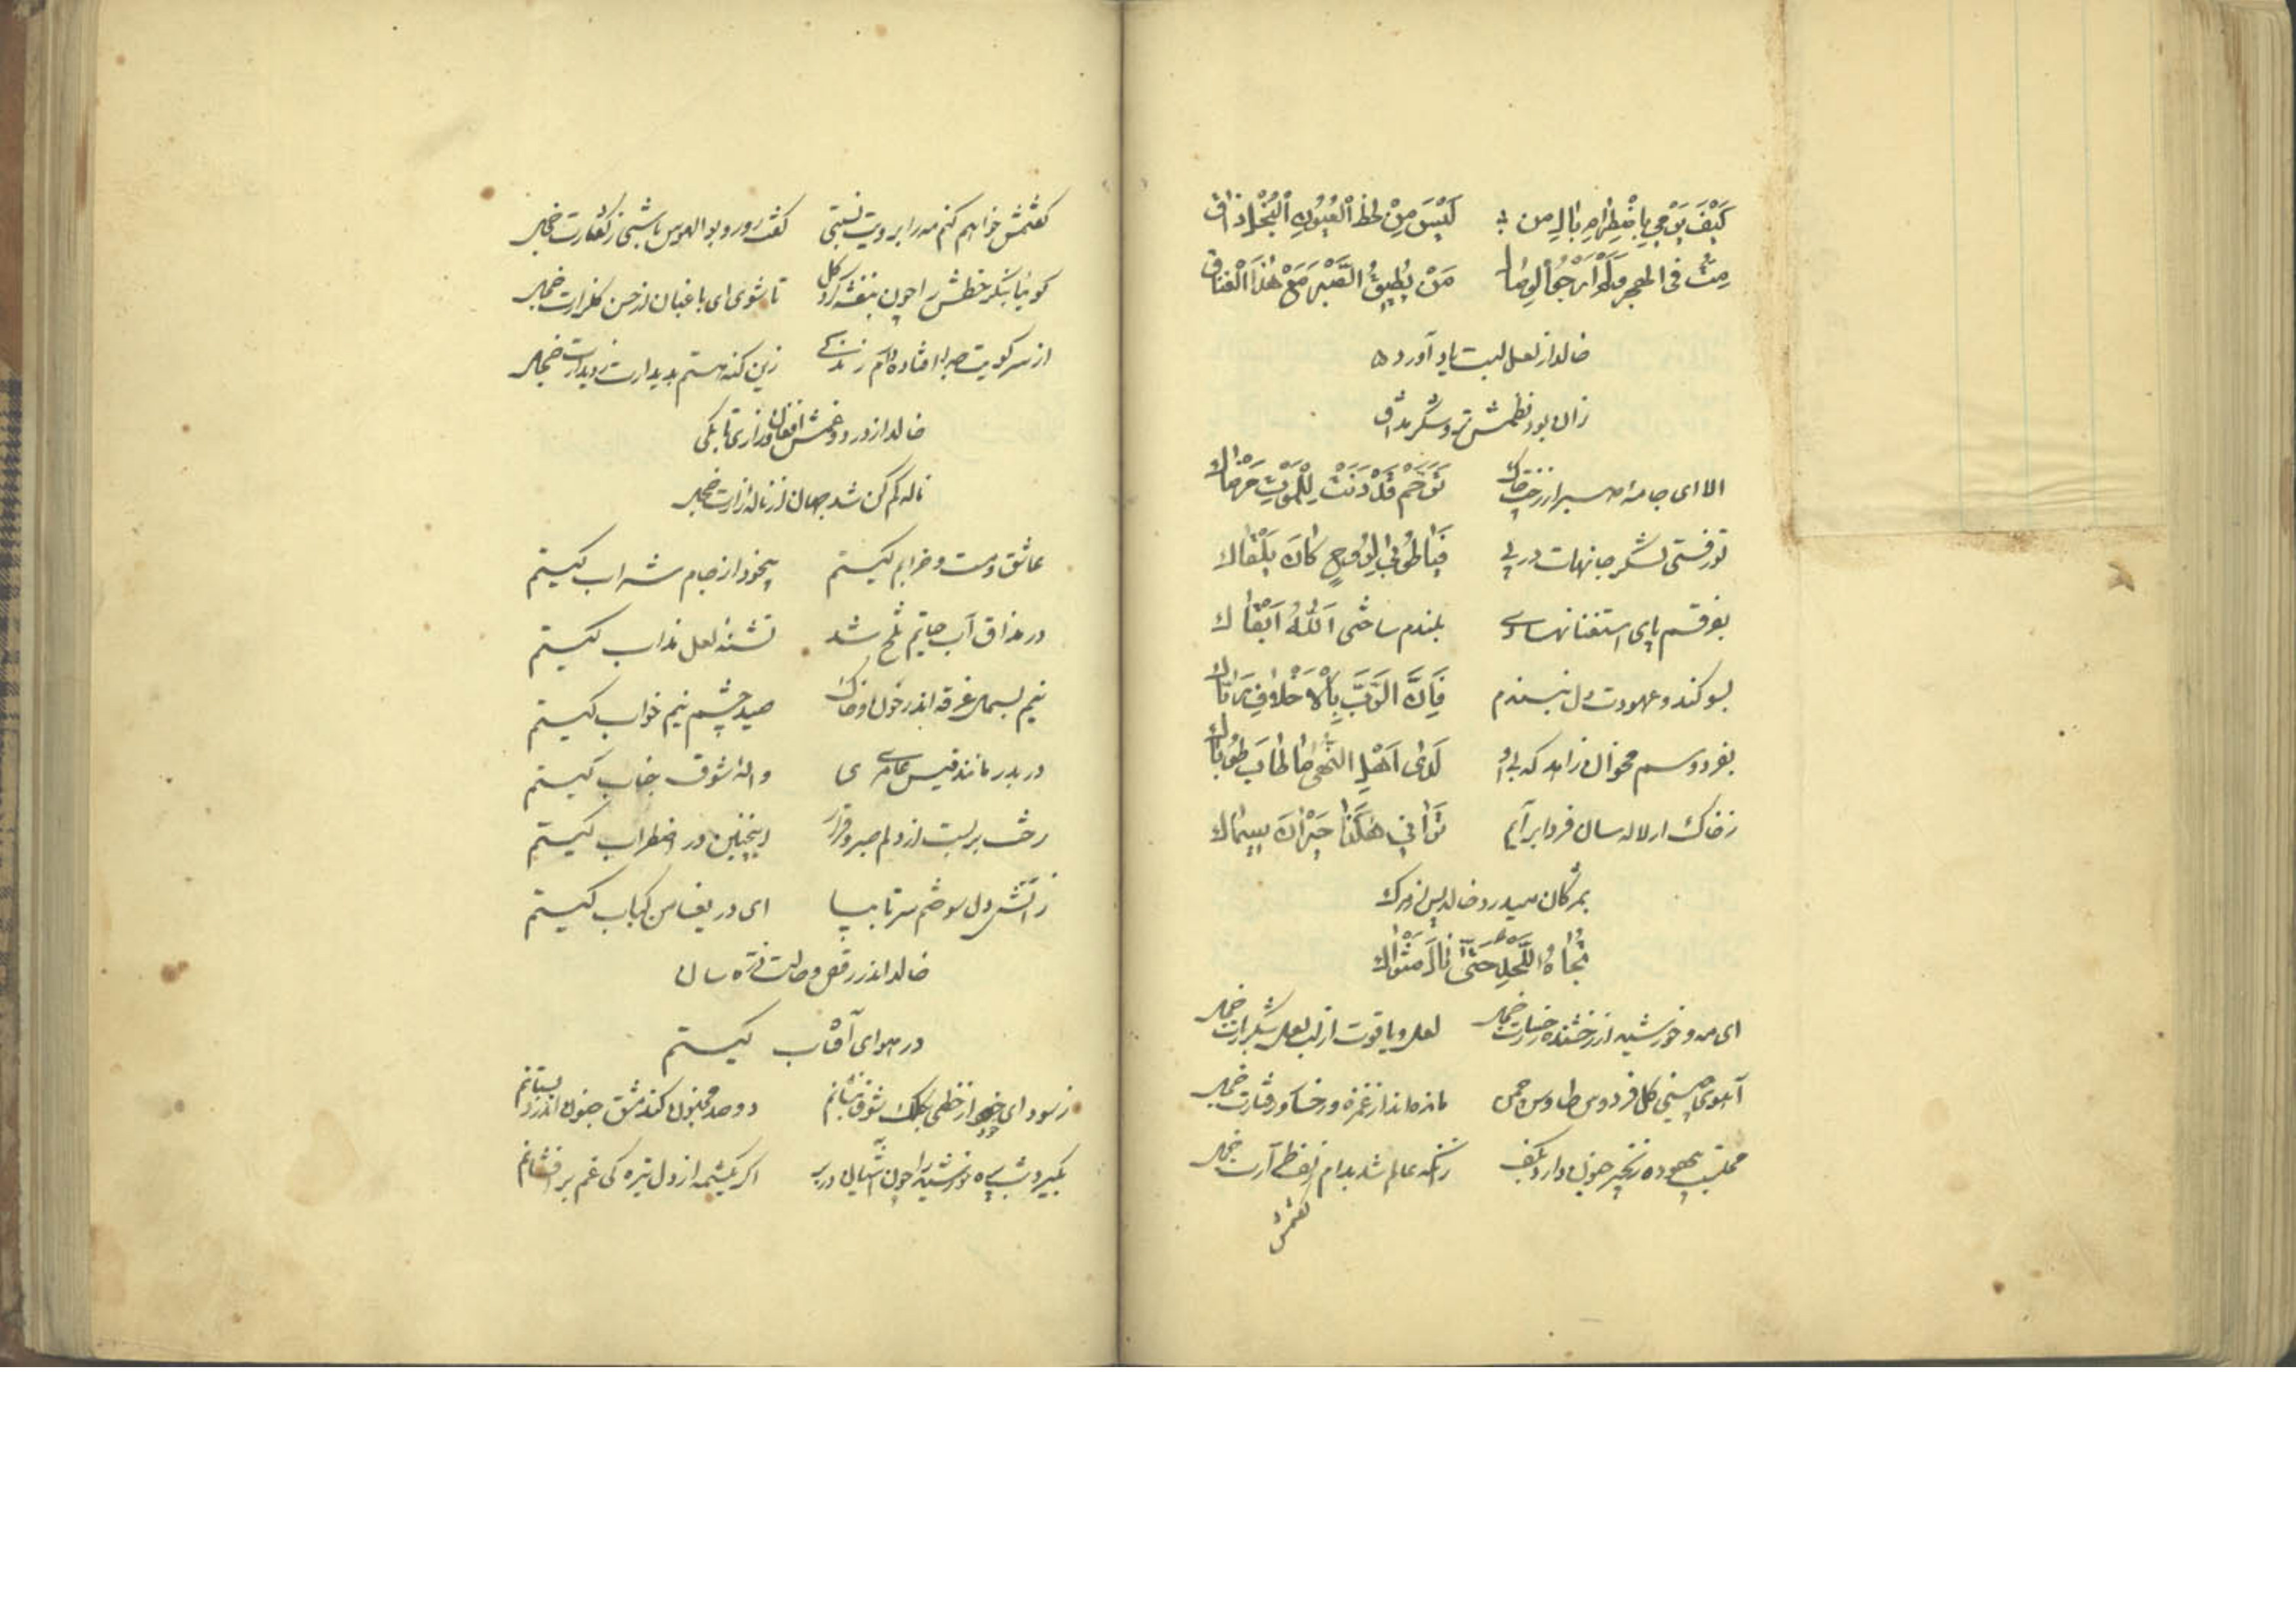 كَيْفَ يُوحِي بِاصْطِبَارٍ بَالِ مِن لَيْسَ مِنْ لَحْظِ الْعُيُونِ النُّجْلِ ذاق
مِتُّ فی الهجر وَلَمْ أَرْجُ الوِصَالَ مَنْ يُطِيقُ الصَّبْرَ مَعْ هٰذَا الْفِرَاق
خالد از لعل لبت یاد آورده
زان بود نظمش تر و شکر مذاق
الا ای جامهٔ صبر از رخت چاک تَرَحَّمْ قَدْ دَنَتْ لِلْمَوْتِ مَرْضَاكَ
تو رفتی لشکر جانهات در پی فَيَا طُوبىٰ لِرُوحٍ كَانَ يَلْقَاكَ
بفرقم پای استغنا نهادی بلندم ساختی اَللّٰهُ اَبْقَاكَ
بسوگند و عهودت دل نبندم فَاِنَّ الرَّبَّ بِالْاَخْلَافِ رَبَّاكَ
بفردوسم مخوان زاهد که بی او لَدَىٰ اَهْلِ النُّهىٰ مَا طَابَ طُوبَاكَ
ز خاک ار لاله سان فردا برآیم تَرَانِي هٰكَذَا حَيْرَانَ سِيمَاكَ
بمژگان میدرد خالد پس از مرگ
تُجَاهُ اللَّحْدِ حَتّىٰ نَالَ مَثْوَاكَ
ای مه و خورشید از رخشنده رخسارت خجل لعل و یاقوت از لب لعل شکربارت خجل
آهوی چینی گل فردوس طاوس چمن مانده اند از غمزه و رخسار و رفتارت خجل
محتسب بیهوده زنجیر جنون دارد بکف زانکه عالم شد بدام زلف آرت خجل
گفتمش
گفتمش خواهم کنم مه را برویت نسبتی گفت رو رو بوالهوس باشی ز گفتارت خجل
گو بیا بنگر خطش را چون بنفشه گرد گل تا شوی ای باغبان از حسن گلزارت خجل
از سر کویت جدا افتاده ام زنده کی زین گنه هستم بدیدارت ز دیدارت خجل
خالد از درد و غمش افغان و زاری تا بکی
ناله کم کن شد جهان از ناله زارت خجل
عاشق و مست و خرابم کیستم بیخود از جام شراب کیستم
در مذاق آب حیاتم تلخ شد تشنهٔ لعل مذاب کیستم
نیم بسمل غرقه اندر خون و خاک صید چشم نیم خواب کیستم
در بدر مانند قیس عامری والهٔ شوق جناب کیستم
رخت بربست از دلم صبر و قرار اینچنین در اضطراب کیستم
ز آتش دل سوختم سر تا بپا ای دریغا من کباب کیستم
خالد اندر رقص و حالت ذره سان
در هوای آفتاب کیستم
ز سودای خود ار خطی بکلک شوق بنگانم دو صد مجنون کند مشق جنون اندر دبستانم
بگیرد شب پره خورشید را چون آشیان در بر اگر یکشمه از دل تیره گی غم برافشانم